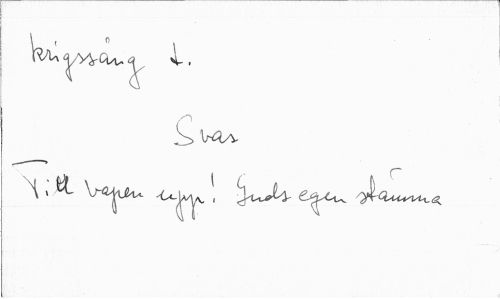 krigssång t.
Svar
Till vapen upp! Guds egen stämma